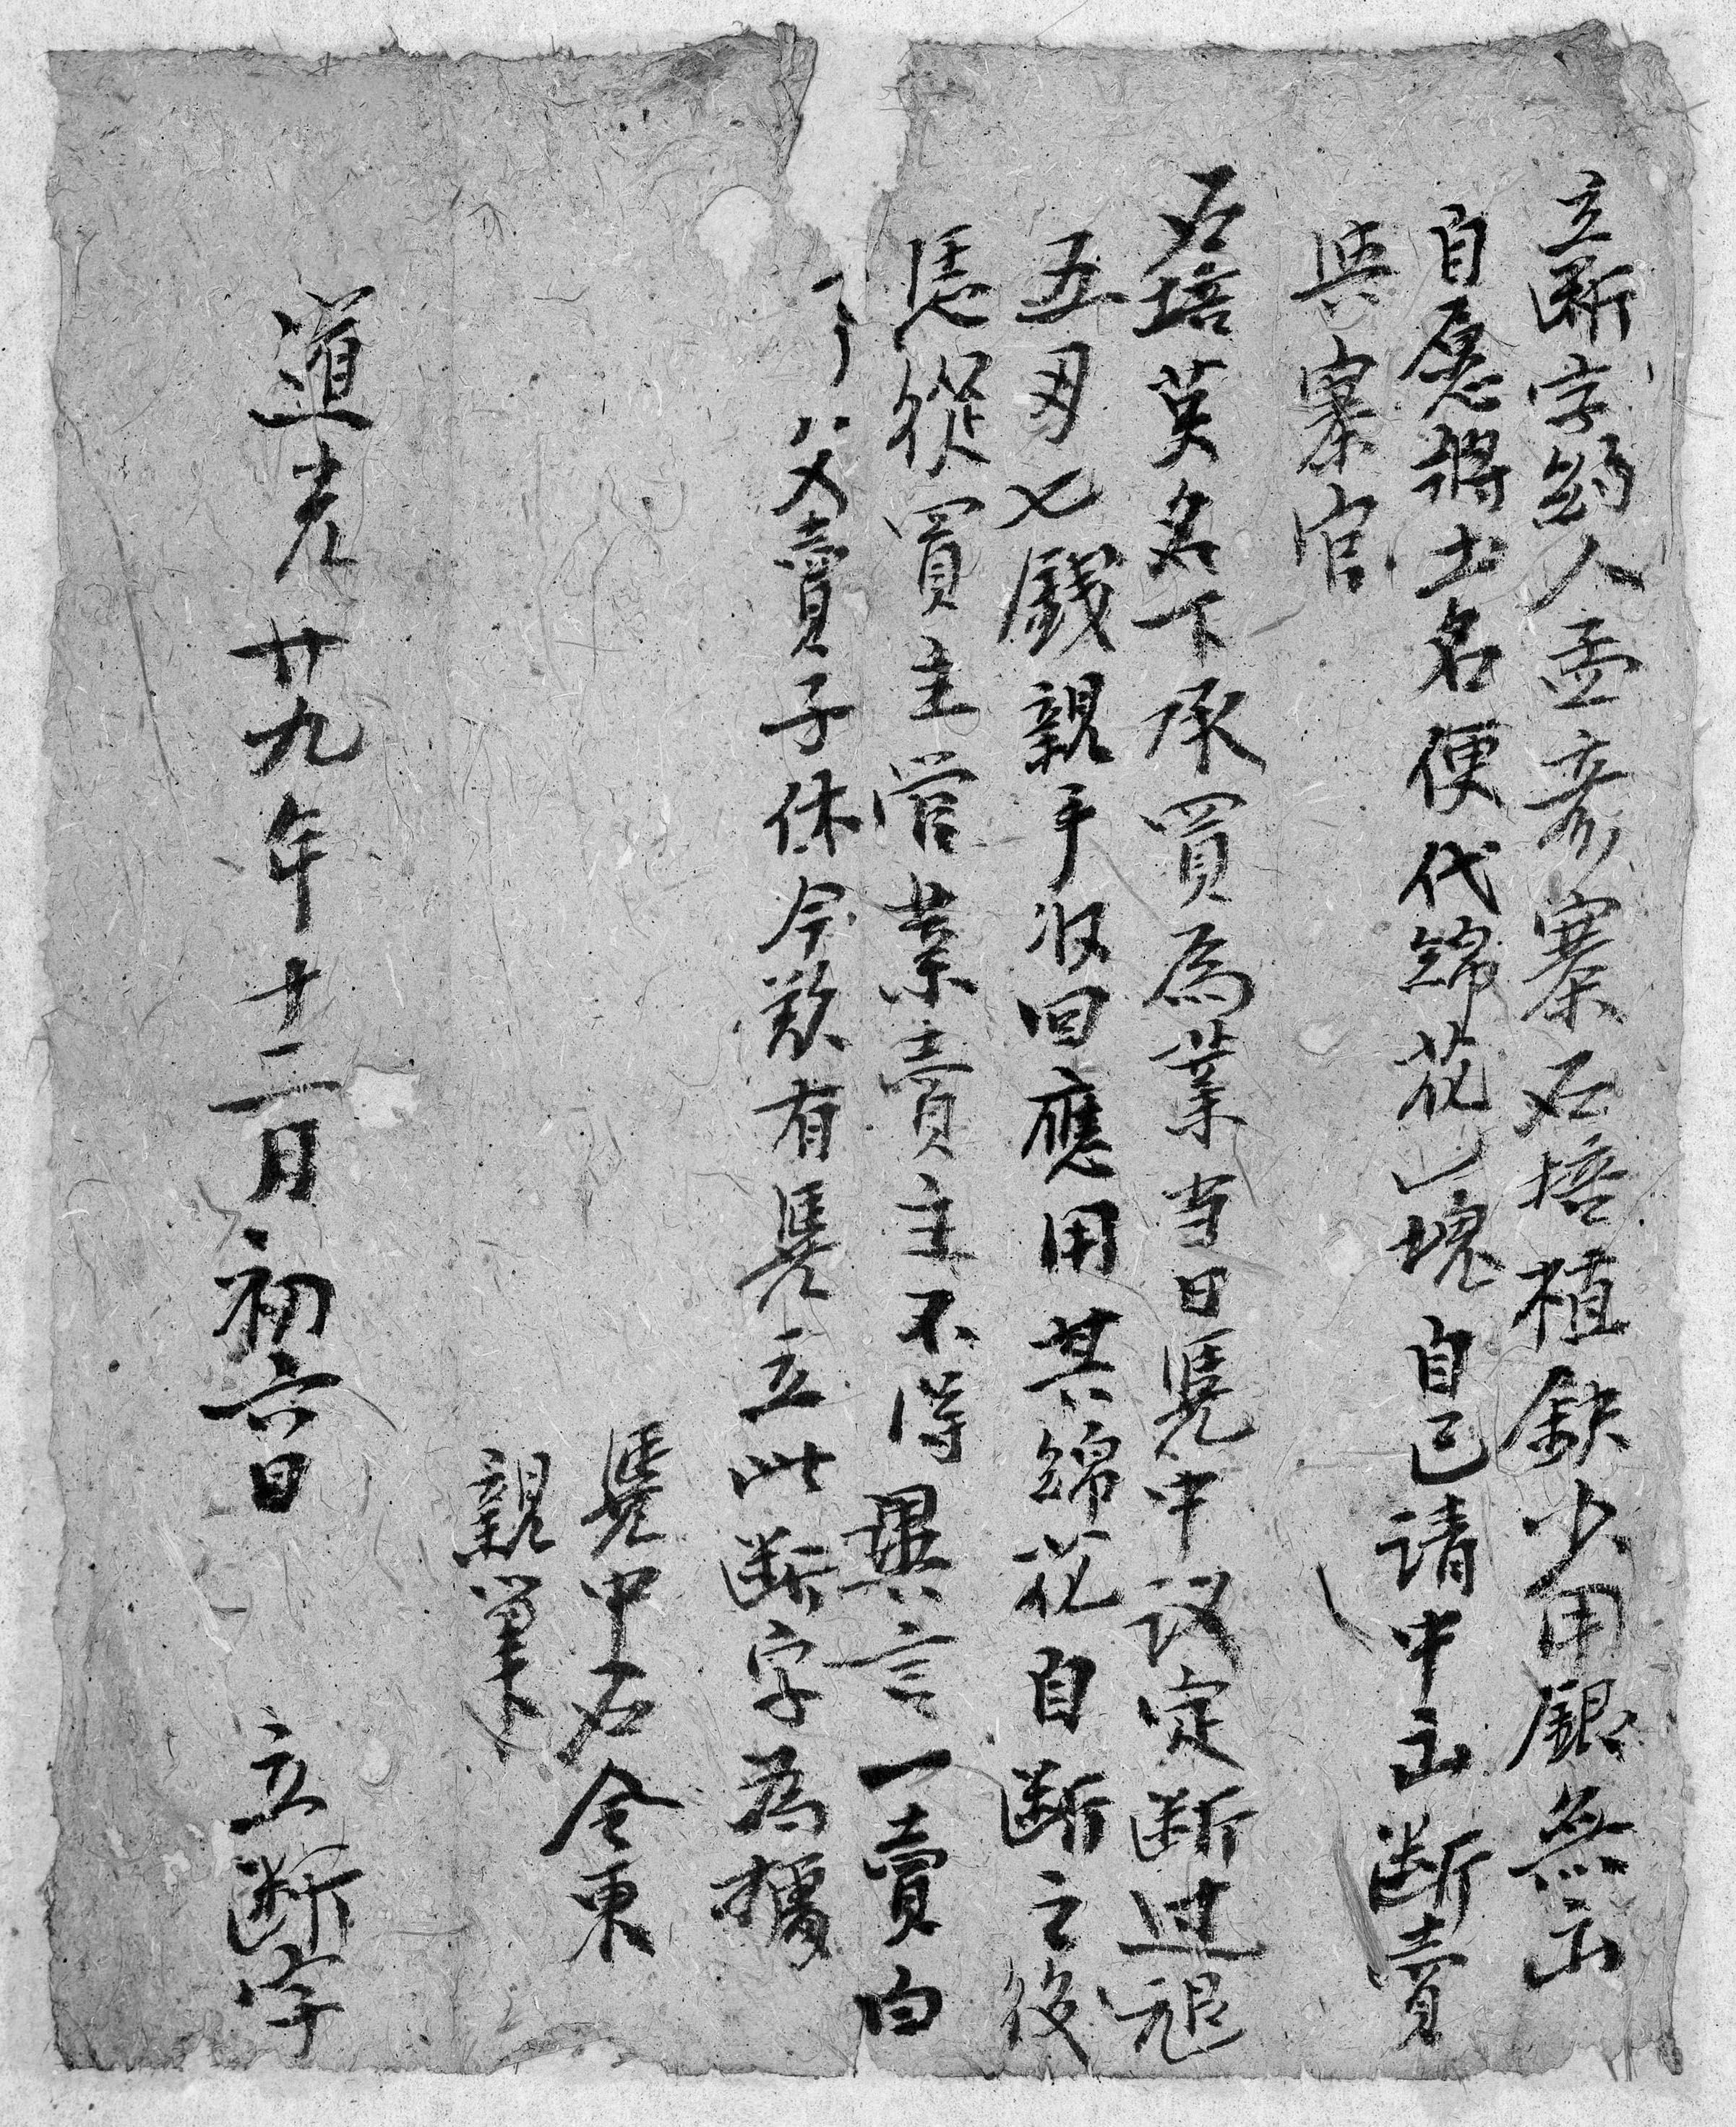 立断字約人孟彦寨石培植缺少用銀無出
自愿將土名便代綿花山塊自己请中出断賣
與寨官
石培英名下承買為業当日凴中议定断过
五刄七錢親手收回應用其綿花自断之後
憑從買主管業賣主不得異言一賣白
了父賣子休今欲有凴立此断字為據
凴中石令東
親筆
道光廿九年十二月初六日 立断字